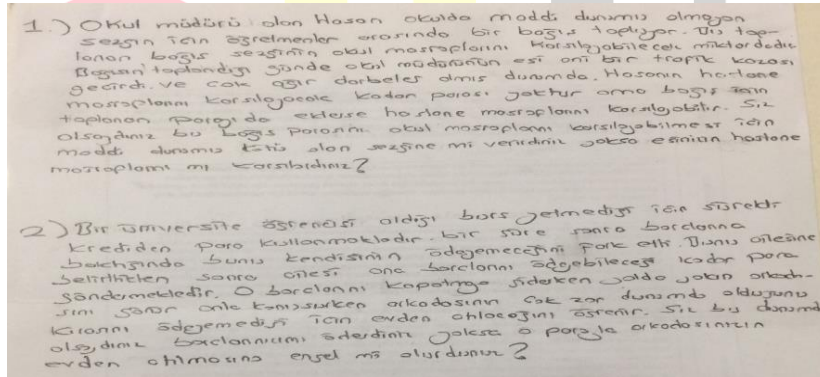 1.) Okul müdürü olan Hasan okulda maddi durumu olmayan
sezgin için öğretmenler arasında bir bağış topluyor. Bu top-
lanan bağış sezginin okul masraplarını karşılayabilecek miktardadır.
Bağışın toplandığı günde okul müdürünün eşi ani bir trafik kazası
geçirdi. ve çok ağır darbeler almış durumda. Hasanın hastane
masraplarını karşılayacak kadar parası yoktur ama bağış için
toplanan parayı da eklerse hastane masraplarını karşılayabilir. Siz
olsaydınız bu bağış parasını okul masraplarını karşılayabilmesi için
maddi durumu kötü olan sezgine mi verirdiniz yoksa eşinizin hastane
masraplarını mı karşılardınız?
2) Bir üniversite öğrencisi aldığı burs yetmediği için sürekli
krediden para kullanmaktadır. bir süre sonra borclarına
baktığında bunu kendisinin ödeyemeceğini fark etti. Bunu ailesine
belirttikten sonra ailesi ona borclarını ödeyebileceği kadar para
göndermektedir. O borclarını kapatmaya giderken yolda yakın arkada-
şını görür onla konuşurken arkadaşının çok zor durumda olduğunu
kirasını ödeyemediği için evden atılacağını öğrenir. Siz bu durumda
olsaydınız borclarınızımı öderdiniz yoksa o parayla arkadaşınızın
evden atılmasına engel mi olurdunuz?